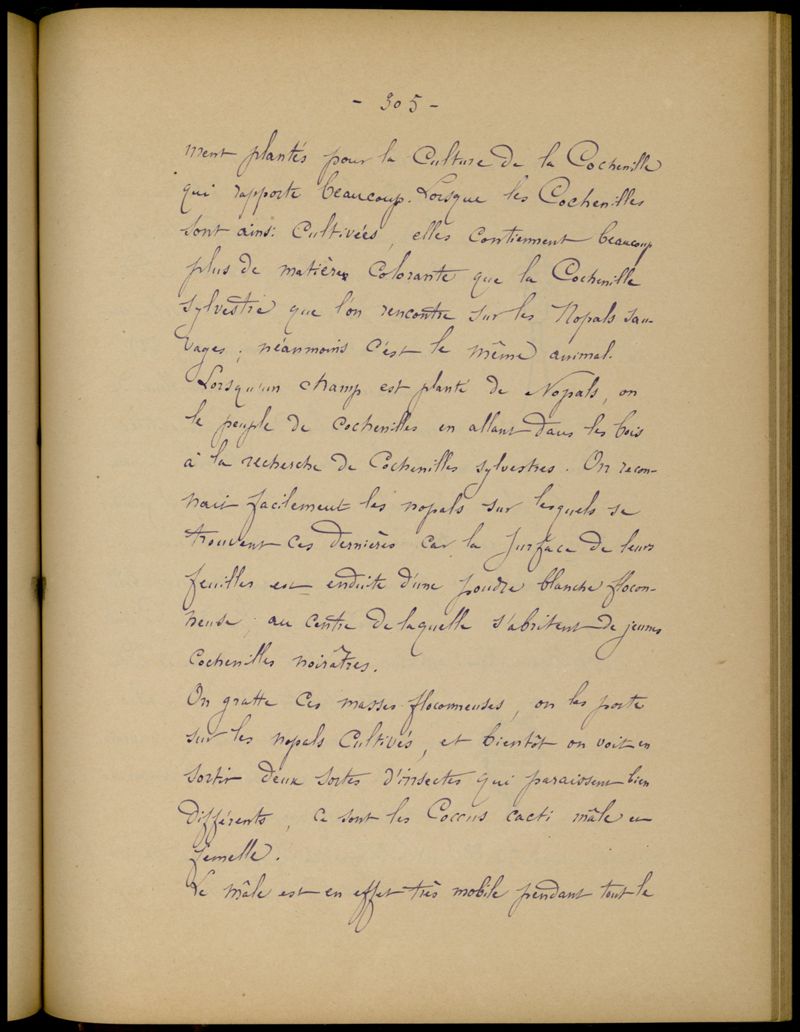 - 305 -
ment plantés pour la Culture de la Cochenille
qui rapporte beaucoup. Lorsque les Cochenilles
sont ainsi Cultivées, elles contiennent beaucoup
plus de matière colorante que la Cochenille
sylvestre que l'on rencontre sur les Nopals sau-
vages ; néanmoins c'est le même animal.
Lorsqu'un champ est planté de Nopals, on
le peuple de Cochenilles en allant dans les bois
à la recherche de Cochenilles sylvestres. On recon-
nait facilement les nopals sur lesquels se
trouvent ces dernières car la surface de leurs
feuilles est enduite d'une poudre blanche flocon-
neuse, au centre de laquelle s'abritent de jeunes
Cochenilles noirâtres.
On gratte ces masses floconneuses, on les porte
sur les nopals Cultivés, et bientôt on voit en
sortir deux sortes d'insectes qui paraissent bien
différents, ce sont les Coccus cacti mâle et
femelle.
Le mâle est en effet très mobile pendant tout le